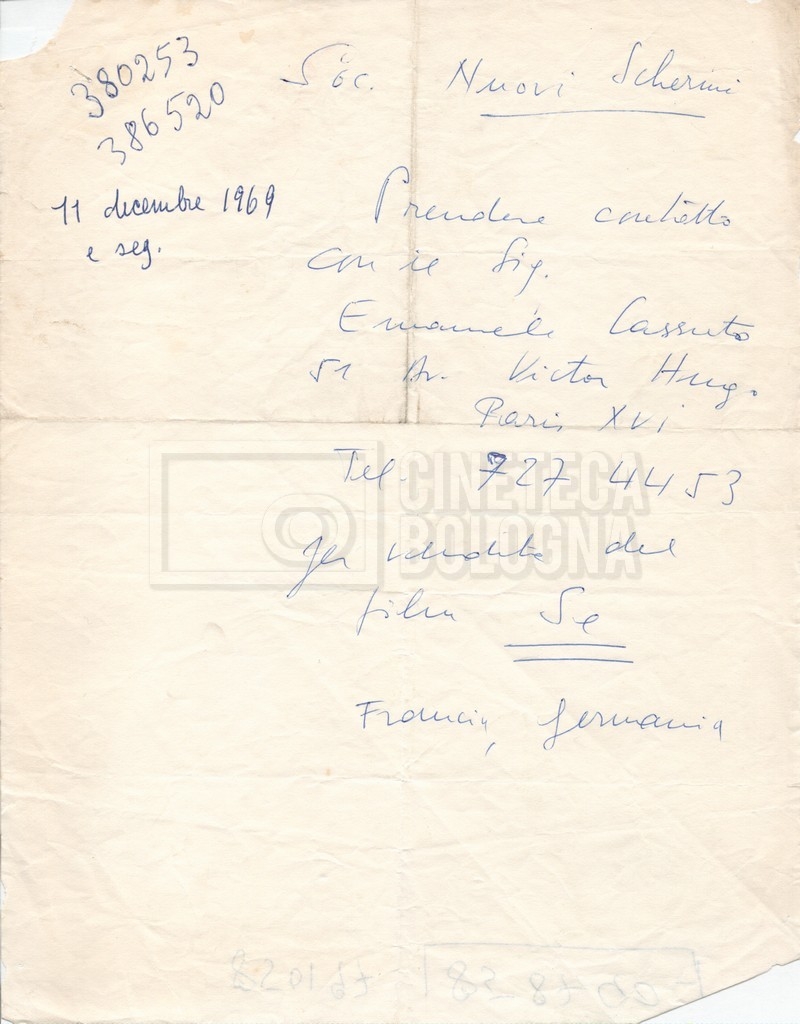 380253
386520
Soc. Nuovi Schermi
11 decembre 1969
e seg.
Prendere contatto
con il Sig.
Emanuele Cassuto
51 Av. Victor Hugo
Paris XVI
Tel. 727 44 53
per vendita del
film Se
Francia, Germania
CINETECA
BOLOGNA